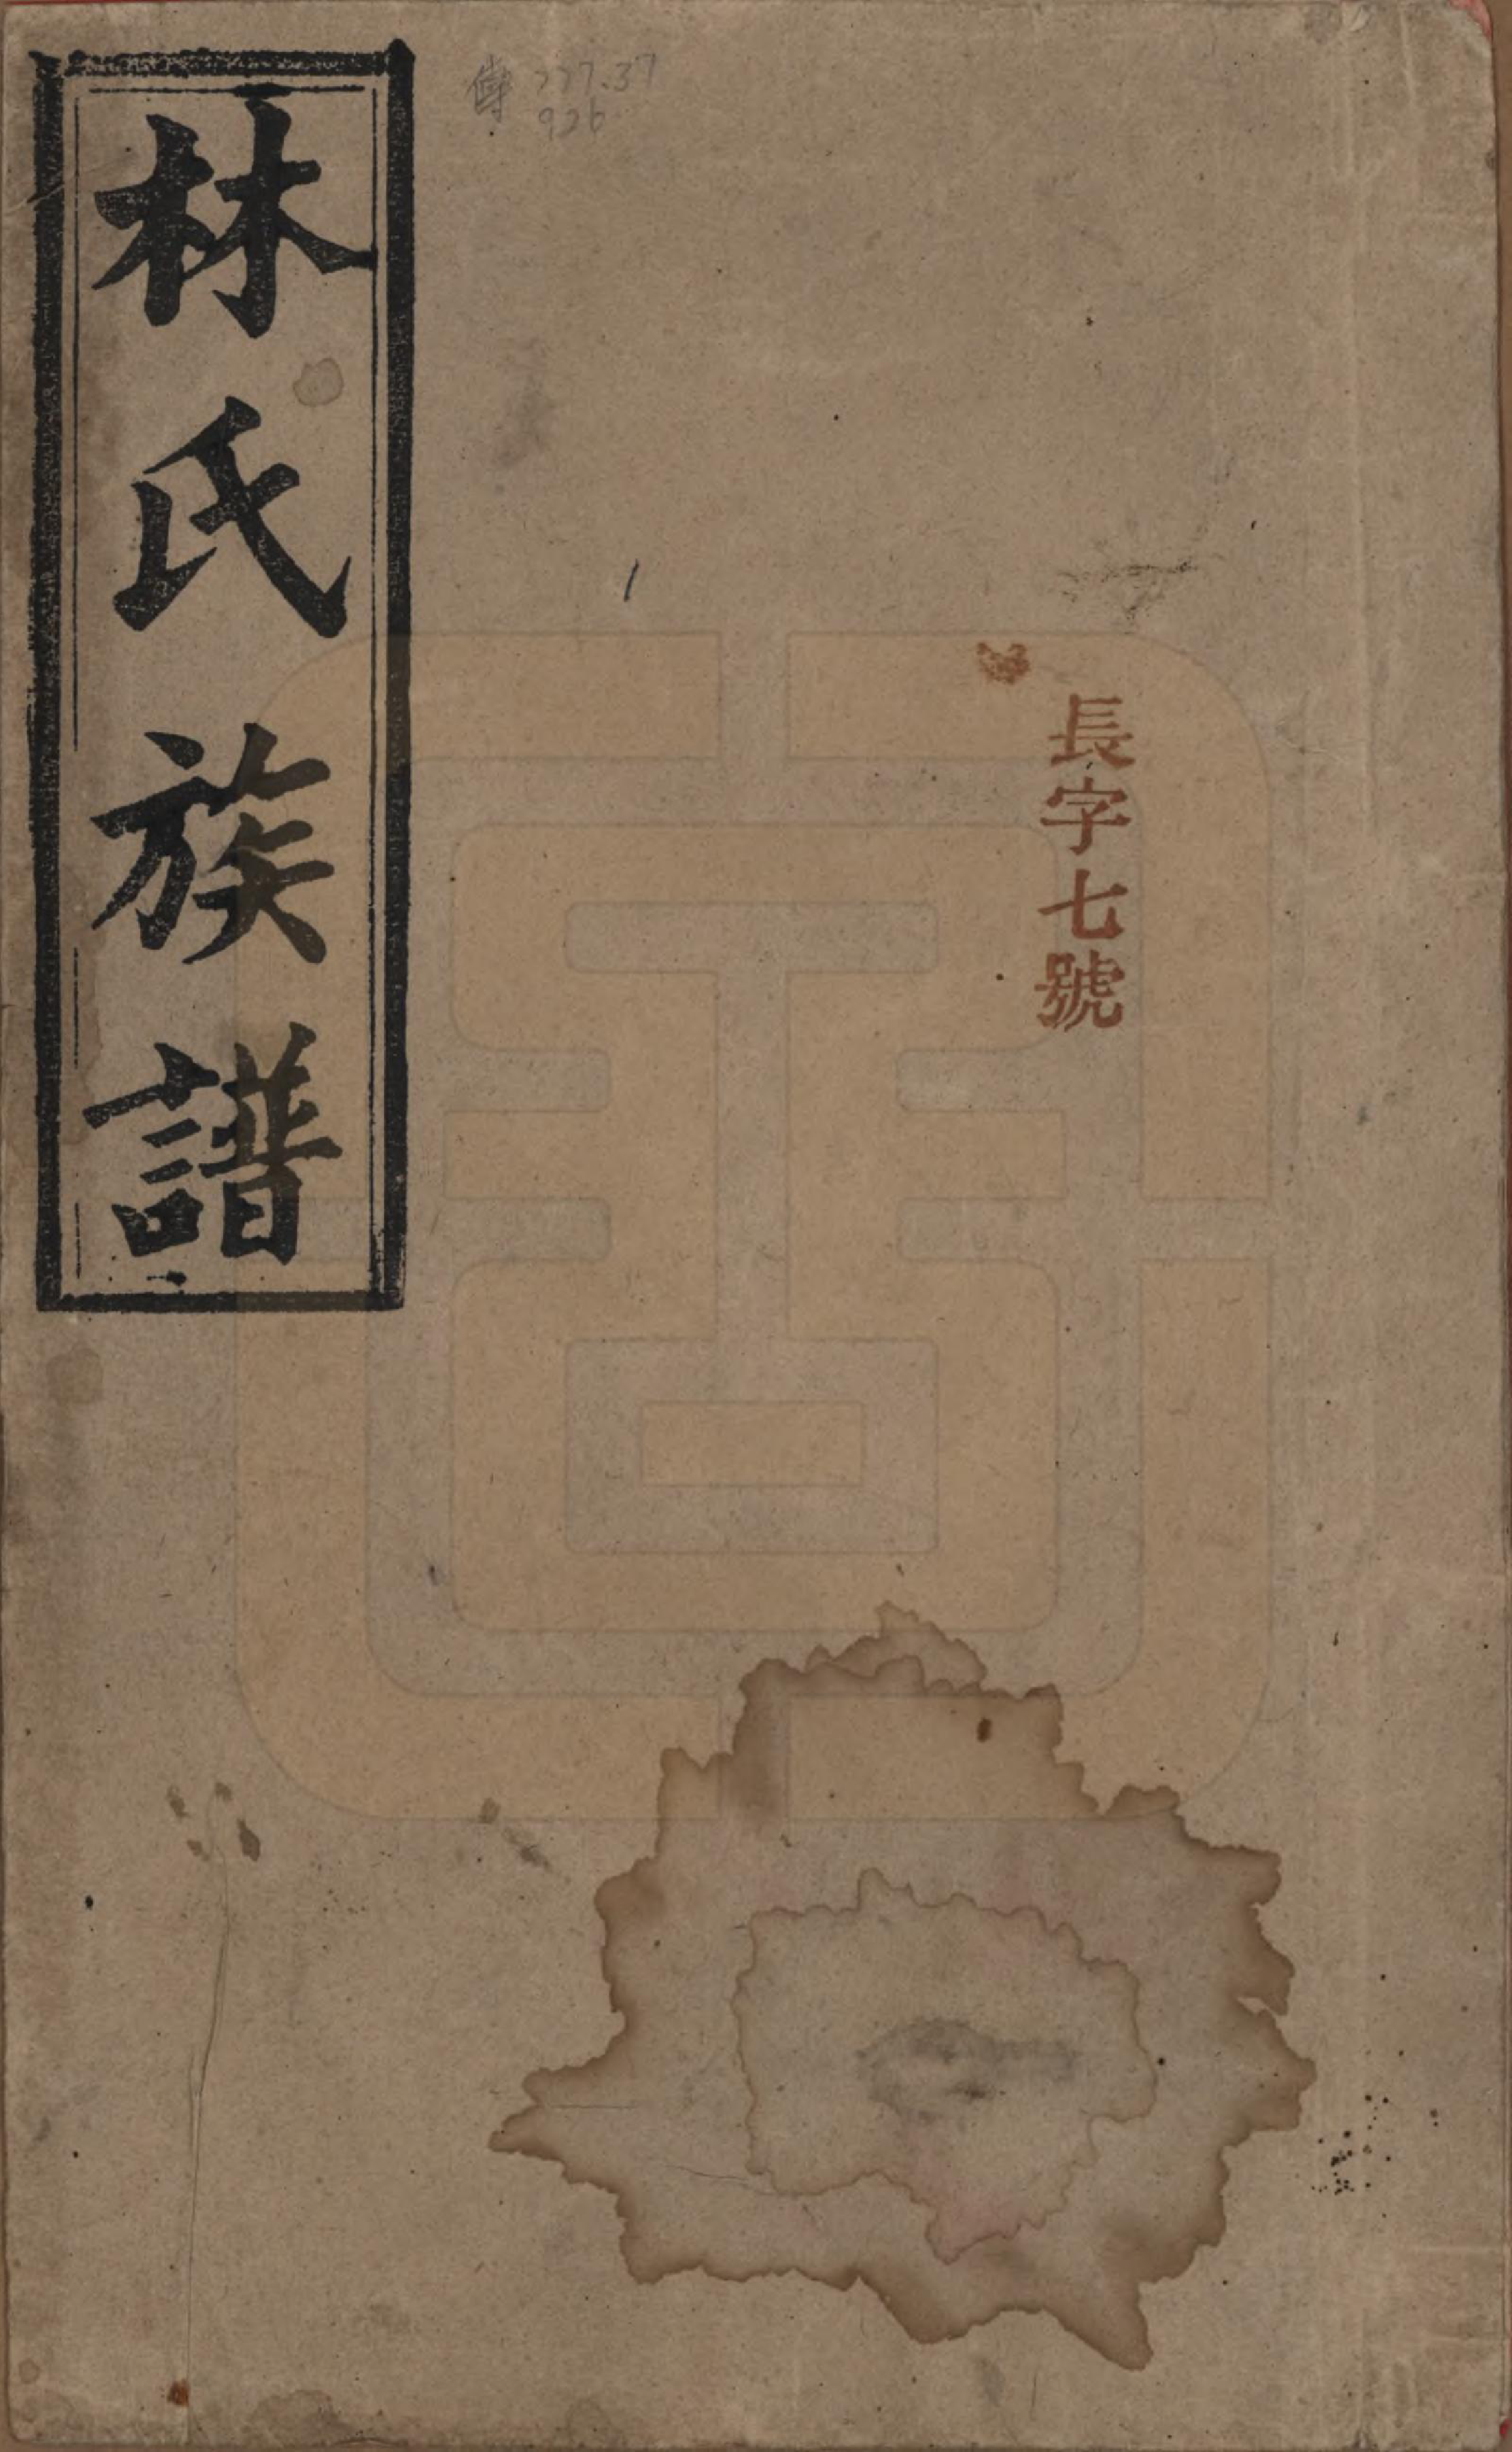 林氏族譜
長字七號
傳 777.37
926
1